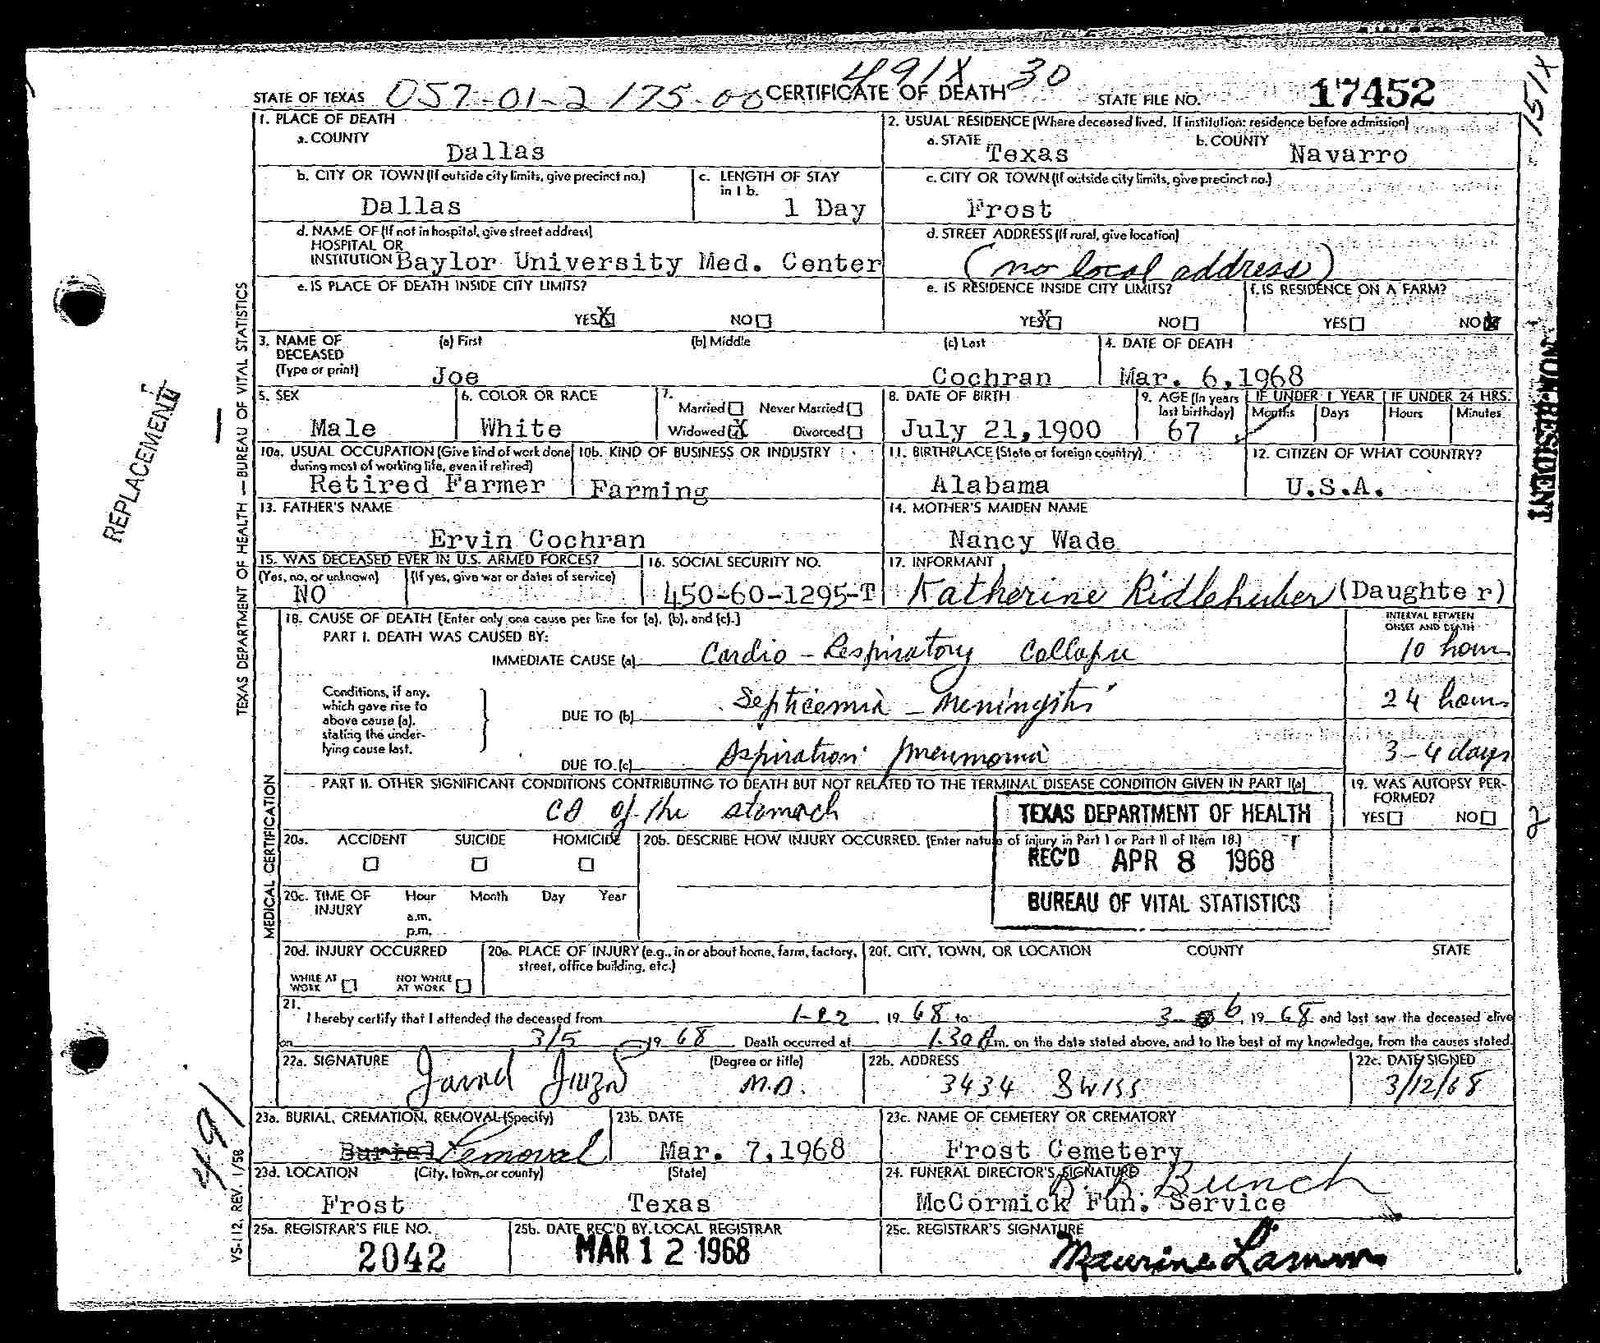 491X 30
STATE OF TEXAS 057-01-2 175-00 CERTIFICATE OF DEATH STATE FILE NO. 17452
151X
1. PLACE OF DEATH
a. COUNTY
Dallas
2. USUAL RESIDENCE (Where deceased lived. If institution: residence before admission)
a. STATE Texas b. COUNTY Navarro
b. CITY OR TOWN (If outside city limits, give precinct no.)
Dallas
c. LENGTH OF STAY in 1 b.
1 Day
c. CITY OR TOWN (If outside city limits, give precinct no.)
Frost
d. NAME OF (If not in hospital, give street address)
HOSPITAL OR
INSTITUTION Baylor University Med. Center
d. STREET ADDRESS (If rural, give location)
(no local address)
e. IS PLACE OF DEATH INSIDE CITY LIMITS?
YES X NO
e. IS RESIDENCE INSIDE CITY LIMITS?
YES X NO
f. IS RESIDENCE ON A FARM?
YES NO X
3. NAME OF DECEASED (Type or print)
(a) First (b) Middle (c) Last
Joe Cochran
4. DATE OF DEATH
Mar. 6,1968
5. SEX
Male
6. COLOR OR RACE
White
7.
Married Never Married
Widowed X Divorced
8. DATE OF BIRTH
July 21,1900
9. AGE (In years last birthday)
67
IF UNDER 1 YEAR IF UNDER 24 HRS.
Months Days Hours Minutes
10a. USUAL OCCUPATION (Give kind of work done during most of working life, even if retired)
Retired Farmer
10b. KIND OF BUSINESS OR INDUSTRY
Farming
11. BIRTHPLACE (State or foreign country)
Alabama
12. CITIZEN OF WHAT COUNTRY?
U.S.A.
13. FATHER'S NAME
Ervin Cochran
14. MOTHER'S MAIDEN NAME
Nancy Wade
15. WAS DECEASED EVER IN U.S. ARMED FORCES?
(Yes, no, or unknown) (If yes, give war or dates of service)
NO
16. SOCIAL SECURITY NO.
450-60-1295-T
17. INFORMANT
Katherine Ridlehuber (Daughter)
18. CAUSE OF DEATH (Enter only one cause per line for (a), (b), and (c).)
PART I. DEATH WAS CAUSED BY:
INTERVAL BETWEEN ONSET AND DEATH
IMMEDIATE CAUSE (a) Cardio-Respiratory Collapse 10 hours
Conditions, if any, which gave rise to above cause (a), stating the underlying cause last.
DUE TO (b) Septicemia - Meningitis 24 hours
DUE TO (c) Aspiration Pneumonia 3-4 days
PART II. OTHER SIGNIFICANT CONDITIONS CONTRIBUTING TO DEATH BUT NOT RELATED TO THE TERMINAL DISEASE CONDITION GIVEN IN PART I(a)
ca of the stomach
19. WAS AUTOPSY PERFORMED?
YES NO
2
TEXAS DEPARTMENT OF HEALTH
REC'D APR 8 1968
BUREAU OF VITAL STATISTICS
20a. ACCIDENT SUICIDE HOMICIDE
20b. DESCRIBE HOW INJURY OCCURRED. (Enter nature of injury in Part I or Part II of Item 18.)
20c. TIME OF INJURY Hour Month Day Year
a.m.
p.m.
20d. INJURY OCCURRED
WHILE AT WORK NOT WHILE AT WORK
20e. PLACE OF INJURY (e.g., in or about home, farm, factory, street, office building, etc.)
20f. CITY, TOWN, OR LOCATION COUNTY STATE
21.
I hereby certify that I attended the deceased from 1-22, 1968 to 3-6, 1968 and last saw the deceased alive
on 3/5 1968 Death occurred at 1:30 A.m. on the date stated above, and to the best of my knowledge, from the causes stated.
22a. SIGNATURE (Degree or title)
M.D.
22b. ADDRESS
3434 Swiss
22c. DATE SIGNED
3/12/68
23a. BURIAL, CREMATION, REMOVAL (Specify)
Burial Removal
23b. DATE
Mar. 7,1968
23c. NAME OF CEMETERY OR CREMATORY
Frost Cemetery
23d. LOCATION (City, town, or county) (State)
Frost Texas
24. FUNERAL DIRECTOR'S SIGNATURE
Bunch
McCormick Fun. Service
25a. REGISTRAR'S FILE NO.
2042
25b. DATE REC'D BY LOCAL REGISTRAR
MAR 12 1968
25c. REGISTRAR'S SIGNATURE
Maurine
TEXAS DEPARTMENT OF HEALTH — BUREAU OF VITAL STATISTICS
MEDICAL CERTIFICATION
REPLACEMENT
NON RESIDENT
491
VS-112 REV 1/58